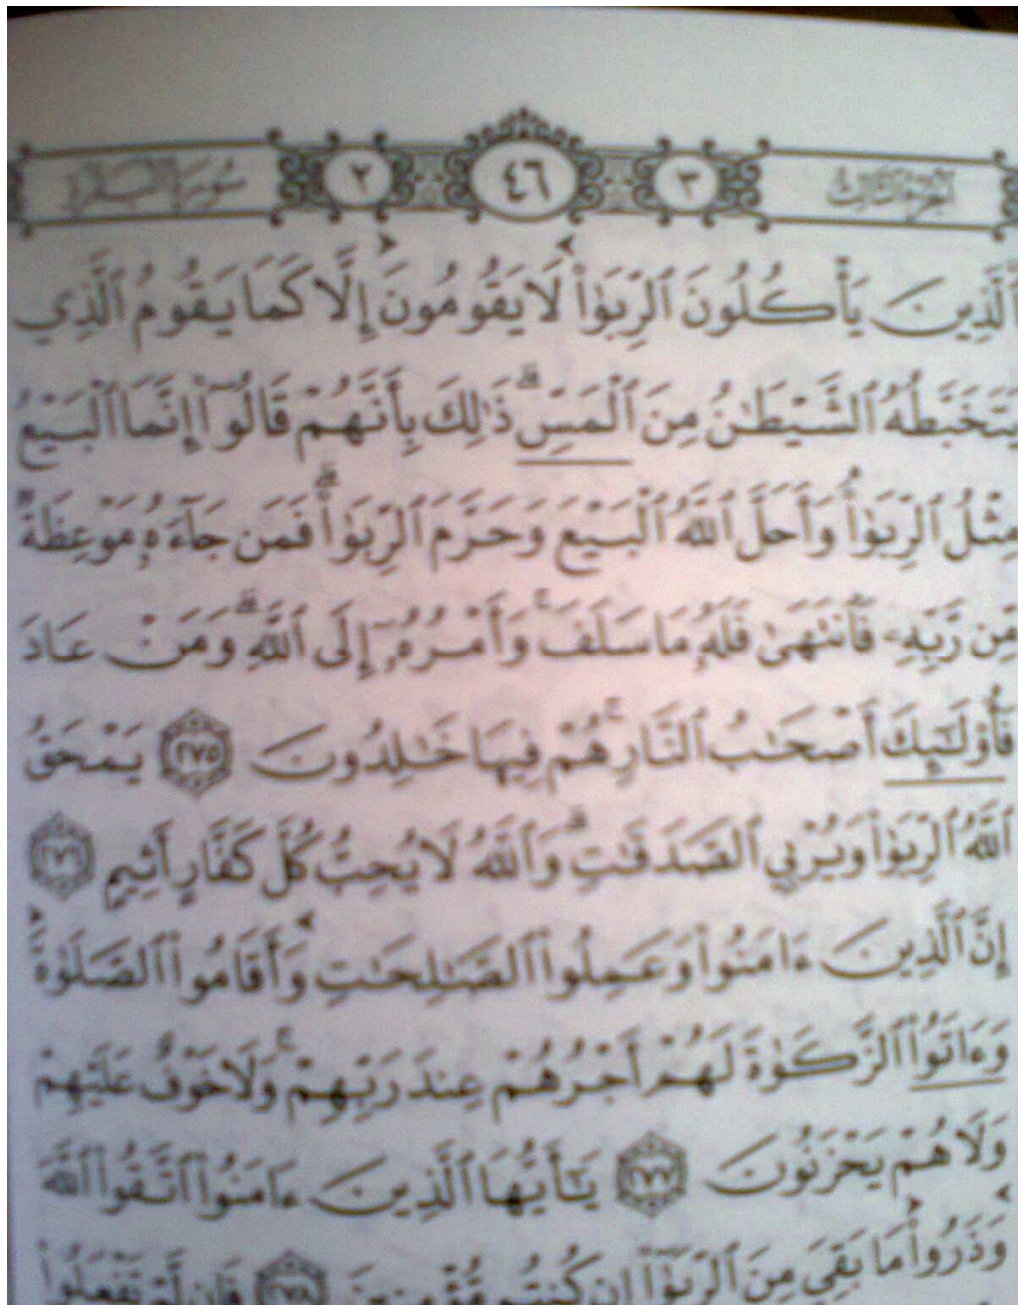 الجزء الثالث ٣ ٤٦ ٢ سورة البقرة
ٱلَّذِينَ يَأْكُلُونَ ٱلرِّبَوٰا۟ لَا يَقُومُونَ إِلَّا كَمَا يَقُومُ ٱلَّذِي
يَتَخَبَّطُهُ ٱلشَّيْطَٰنُ مِنَ ٱلْمَسِّۗ ذَٰلِكَ بِأَنَّهُمْ قَالُوٓا۟ إِنَّمَا ٱلْبَيْعُ
مِثْلُ ٱلرِّبَوٰا۟ۗ وَأَحَلَّ ٱللَّهُ ٱلْبَيْعَ وَحَرَّمَ ٱلرِّبَوٰا۟ۚ فَمَن جَآءَهُۥ مَوْعِظَةٌ
مِّن رَّبِّهِۦ فَٱنتَهَىٰ فَلَهُۥ مَا سَلَفَ وَأَمْرُهُۥٓ إِلَى ٱللَّهِۖ وَمَنْ عَادَ
فَأُو۟لَٰٓئِكَ أَصْحَٰبُ ٱلنَّارِۖ هُمْ فِيهَا خَٰلِدُونَ ٢٧٥ يَمْحَقُ
ٱللَّهُ ٱلرِّبَوٰا۟ وَيُرْبِي ٱلصَّدَقَٰتِۗ وَٱللَّهُ لَا يُحِبُّ كُلَّ كَفَّارٍ أَثِيمٍ ٢٧٦
إِنَّ ٱلَّذِينَ ءَامَنُوا۟ وَعَمِلُوا۟ ٱلصَّٰلِحَٰتِ وَأَقَامُوا۟ ٱلصَّلَوٰةَ
وَءَاتَوُا۟ ٱلزَّكَوٰةَ لَهُمْ أَجْرُهُمْ عِندَ رَبِّهِمْۚ وَلَا خَوْفٌ عَلَيْهِمْ
وَلَا هُمْ يَحْزَنُونَ ٢٧٧ يَٰٓأَيُّهَا ٱلَّذِينَ ءَامَنُوا۟ ٱتَّقُوا۟ ٱللَّهَ
وَذَرُوا۟ مَا بَقِيَ مِنَ ٱلرِّبَوٰٓا۟ إِن كُنتُم مُّؤْمِنِينَ ٢٧٨ فَإِن لَّمْ تَفْعَلُوا۟